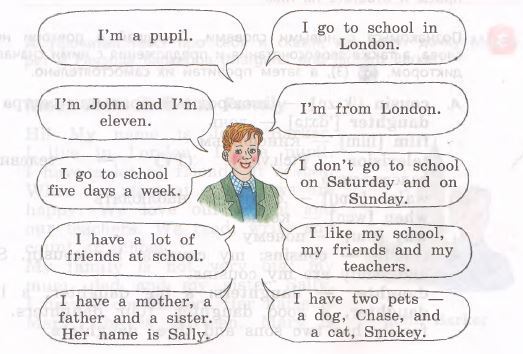 I'm a pupil.
I go to school in
London.
I'm John and I'm
eleven.
I'm from London.
I go to school
five days a week.
I don't go to school
on Saturday and on
Sunday.
I have a lot of
friends at school.
I like my school,
my friends and my
teachers.
I have a mother, a
father and a sister.
Her name is Sally.
I have two pets —
a dog, Chase, and
a cat, Smokey.